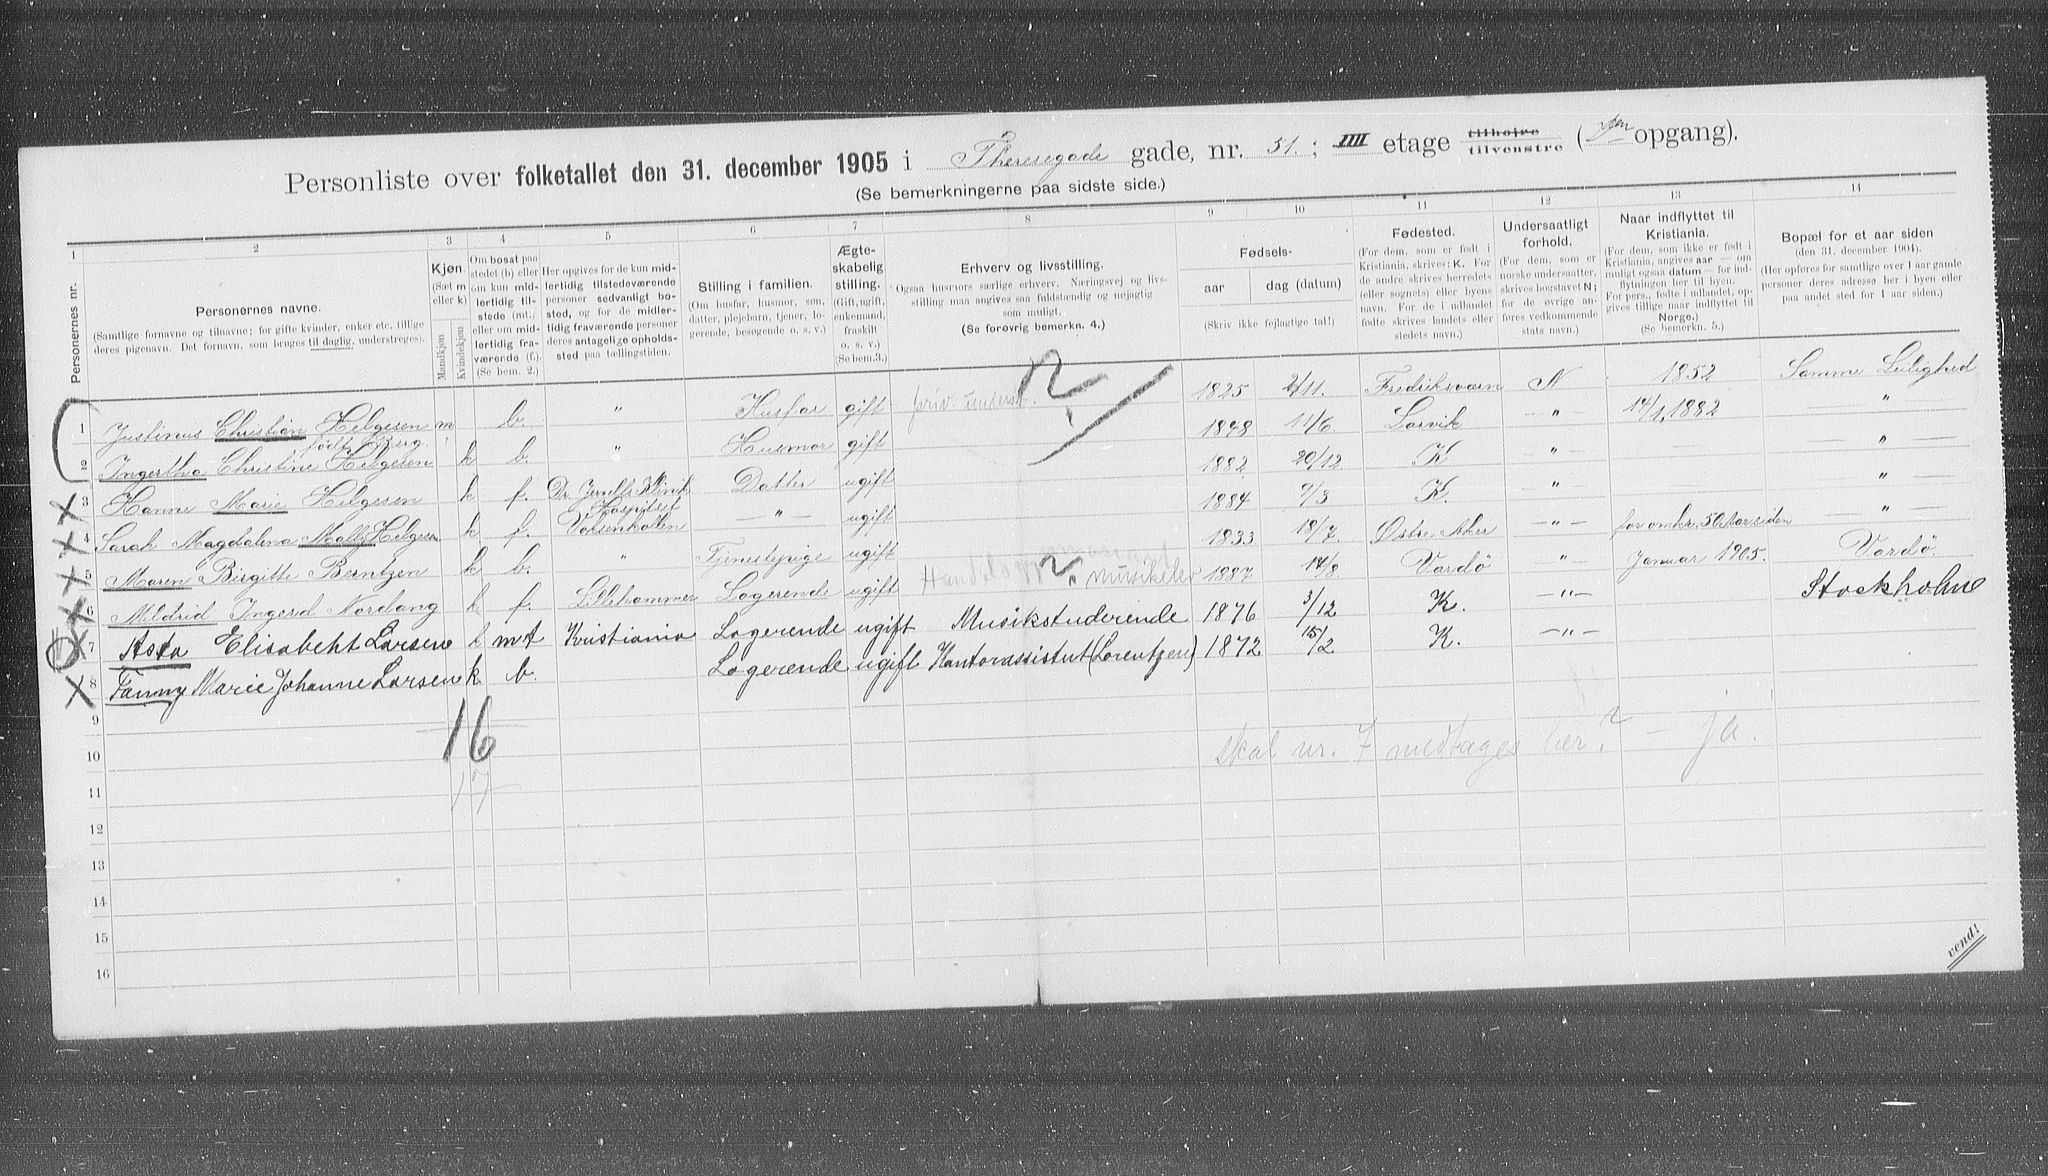 Personliste over folketallet den 31. december 1905 i Theresegade gade, nr. 51. ; IIII etage tilhøjre tilvenstre ( opgang).
(Se bemerkningerne paa sidste side.)
1 2 3 4 5 6 7 8 9 10 11 12 13 14
Personernes nr.
Personernes navne.
(Samtlige fornavne og tilnavne; for gifte kvinder, enker etc. tillige
deres pigenavn. Det fornavn, som bruges til daglig, understreges).
Kjøn.
(Sæt m
eller k)
Mandkjøn
Kvindekjøn
Om bosat paa
stedet (b) eller
om kun mid-
lertidig til-
stede (mt.)
eller om mid-
lertidig fra-
værende (f.).
(Se bem. 2.)
Her opgives for de kun mid-
lertidig tilstedeværende
personer sedvanligt bo-
sted, og for de midler-
tidig fraværende personer
deres antagelige opholds-
sted paa tællingstiden.
Stilling i familien.
(Om husfar, husmor, søn,
datter, plejebarn, tjener, lo-
gerende, besøgende o. s. v.)
Ægte-
skabelig
stilling.
(Gift, ugift,
enkemand,
fraskilt
o. s. v.)
(Se bem.3.)
Erhverv og livsstilling.
(Ogsaa husmors særlige erhverv. Næringsvej og livs-
stilling maa angives saa fuldstændig og nøjagtig
som muligt.
(Se forøvrig bemerkn. 4.)
Fødsels-
aar dag (datum)
(Skriv ikke fejlagtige tal!)
Fødested.
(For dem, som er født i
Kristiania, skrives: K. For
de andre skrives herredets
(eller sognets) eller byens
navn. For de i udlandet
fødte skrives landets eller
stedets navn.)
Undersaatligt
forhold.
(For dem, som er
norske undersaatter,
skrives bogstavet N;
for de øvrige an-
føres vedkommende
stats navn.)
Naar indflyttet til
Kristiania.
(For dem, som ikke er født i
Kristiania, angives aar — om
muligt ogsaa datum — for ind-
flytningen her til byen.
For pers., fødte i udlandet, op-
gives tillige naar indflyttet til
Norge.)
(Se bemerkn. 5.)
Bopæl for et aar siden
(den 31. december 1904).
(Her opføres for samtlige over 1 aar gamle
personer deres adresse her i byen eller
paa andet sted for 1 aar siden.)
1 Justinus Christian Helgesen m b. " Husfar gift priv. underst. ? 1825 2/11. Fredriksværn N 1852 Samme Leilighed
født Berg.
2 Ingertha Christine Helgesen k b. " Husmor gift 1848 11/6 Larvik " 14/1, 1882 "
3 Hanne Marie Helgesen k f. Dr. Klinik Datter ugift 1882 20/12 K — " — — " —
Hospitset
4 Sarah Magdalena Mally Helgesen k f. Voksenkollen — " — ugift 1884 9/3 K. " — " —
5 Maren Birgitte Berntzen k b. " Tjenestepige ugift 1833 18/7 Østre Aker — " — for omkr. 50 Aar siden — " —
6 Mildrid Ingerd Nordang k f. Lillehammer Logerende ugift ? Musikelev 1887 14/8. Vardö " Januar 1905. Vardö
7 Asta Elisabeht Larsen k mt Kristiania Logerende ugift Musikstuderende 1876 3/12 K. — " — Stockholm
8 Fanny Marie Johanne Larsen k b. Logerende ugift Kontorassistent (Lorentzen) 1872 15/2 K. — " —
9
16
skal nr. 7 medtages her? — ja.
10
11
17
12
13
14
15
16
vend!